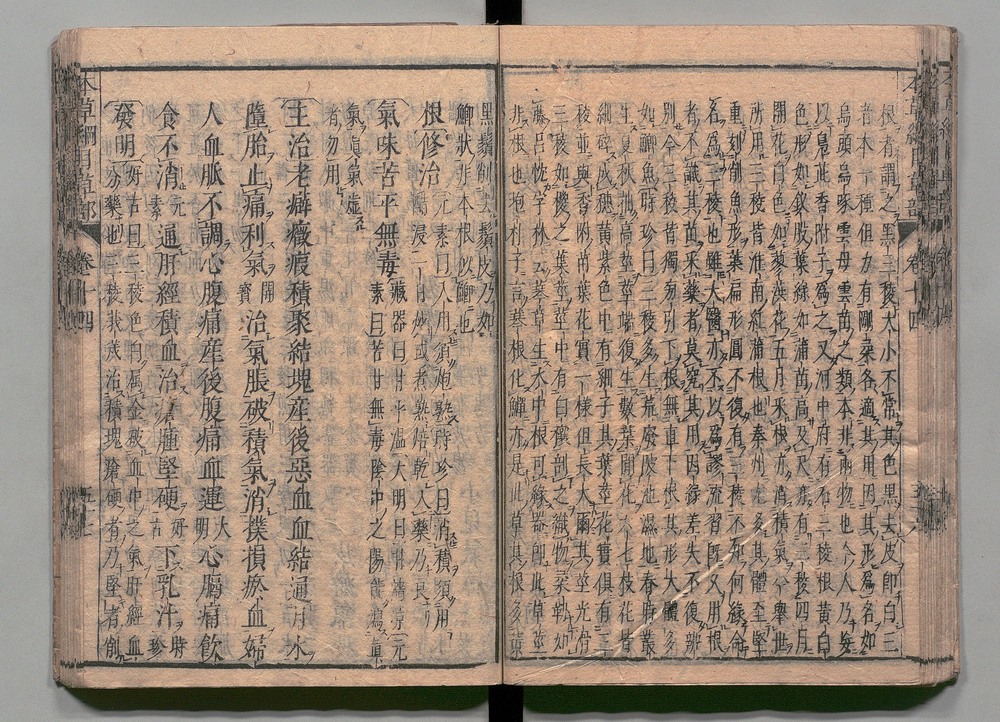 根者謂之黑三稜大小不常其色黑去皮即白三
者本一種但力有剛柔各適其用因其形爲名如
烏頭烏喙雲母雲苗之類本非兩物也今人乃妄
以鳧茈香附子爲之又河中府有石三稜根黃白
色形如釵股葉綠如蒲苗高及尺葉上亦有三稜四月
開花白色如蓼葓花五月采根亦消積氣今舉世
所用三稜皆淮南紅蒲根也泰州尤多其體至堅
重刻削魚形葉扁形圓不復有三稜不知何緣命
名爲三稜也雖太醫亦不以爲謬流習既久用根
者不識其苗采藥者莫究其用因緣差失不復辨
別今三稜皆獨旁引二根無直下根其形大體多
如鯽魚時珍曰三稜多生荒廢陂池濕地春時叢
生夏秋抽高莖莖端復生數葉開花六七枝花皆
細碎成穗黃紫色中有細子其葉莖花實俱有三
稜並與香附苗葉花實一樣但長大爾其莖光滑
三稜如椶之葉莖莖中有白穰剖之織物柔韌如
藤呂忱字林云莖草生水中根可緣器即此草莖
非根也抱朴子言莖根化鱓亦是此草其根多黃
黑鬚削去鬚皮乃如
鯽狀非本根似鯽也
根修治元素曰入用須炮熟時珍曰消積須用
醋浸一日炒或煮熟焙乾入藥乃良
氣味苦平無毒藏器曰甘平溫大明曰甘濇涼元
素曰苦甘無毒陰中之陽能瀉眞
氣眞氣虛
者勿用
主治老癖癥瘕積聚結塊産後惡血血結通月水
墮胎止痛利氣開寶治氣脹破積氣消撲損瘀血婦
人血脈不調心腹痛産後腹痛血運大明心膈痛飲
食不消元素通肝經積血治瘡腫堅硬好古下乳汁時珍
發明好古曰三稜色白屬金破血中之氣肝經血
分藥也三稜莪茂治積塊瘡硬者乃堅者削
本草綱目草部
卷十四
五十七